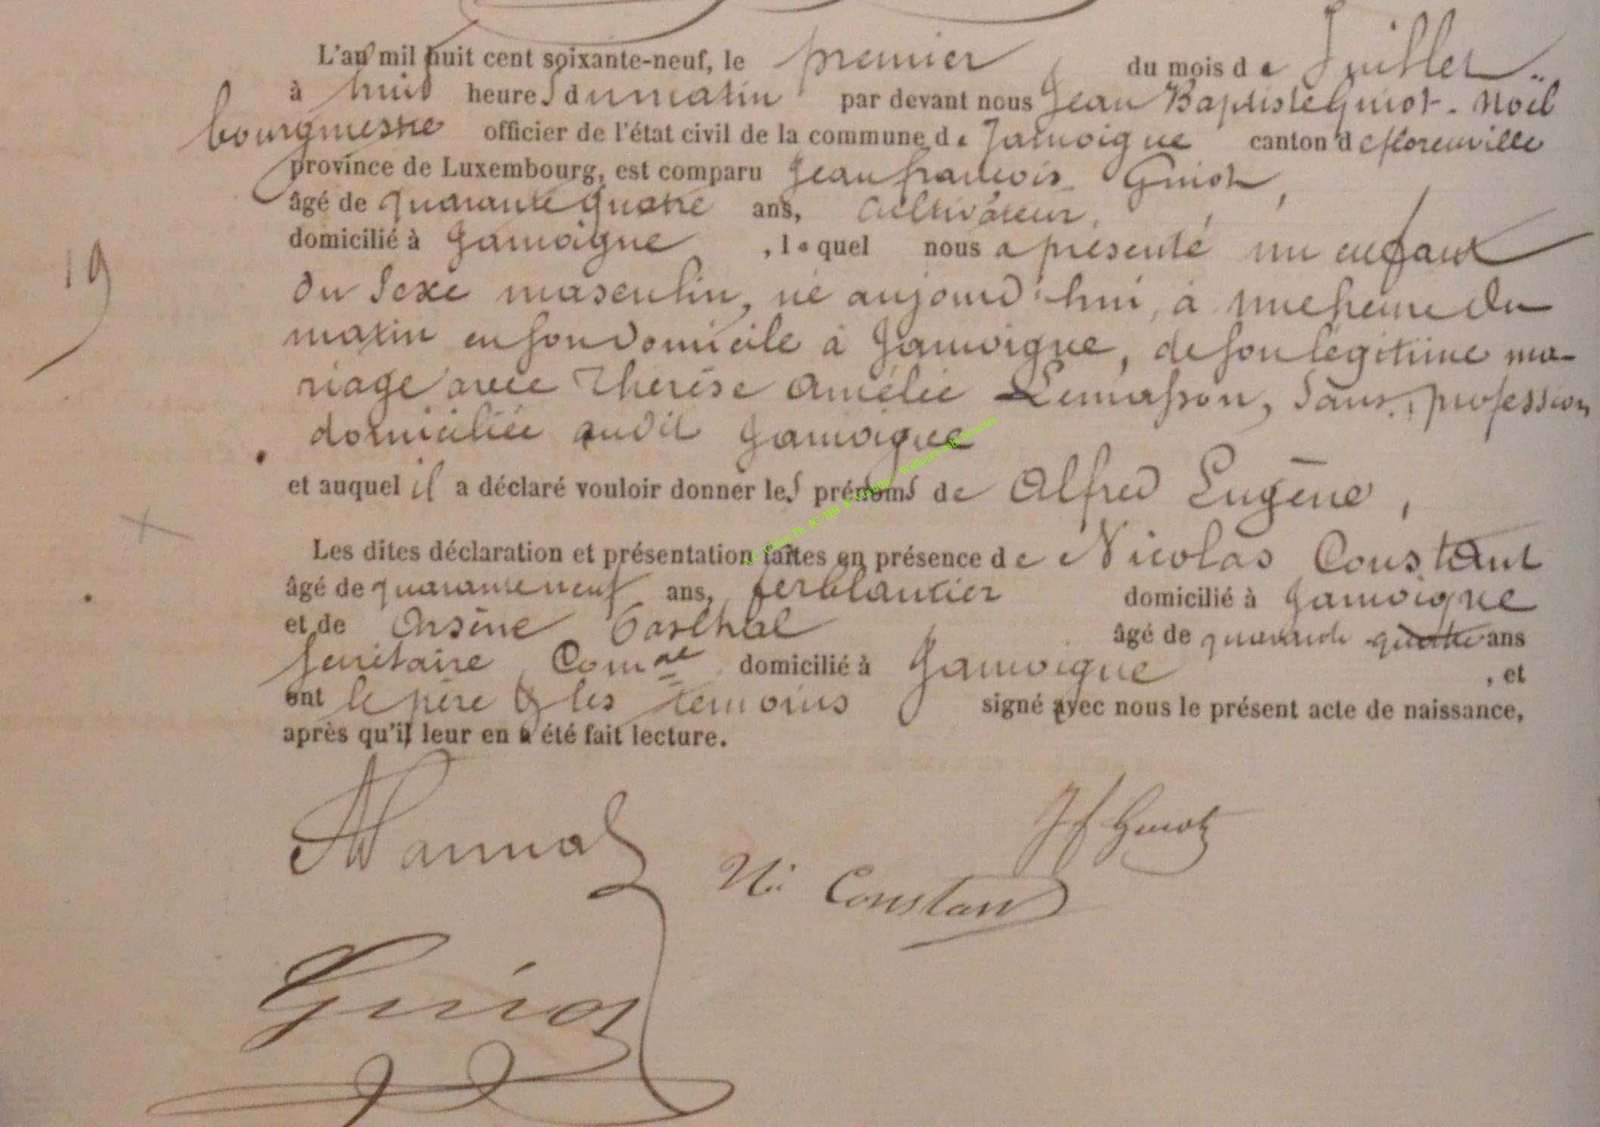 L'an mil huit cent soixante-neuf, le premier du mois de Juillet
à huit heures du matin par devant nous Jean Baptiste Guiot-Noël
bourgmestre officier de l'état civil de la commune de Jamoigne canton de florenville
province de Luxembourg, est comparu Jean françois Guiot,
âgé de quarante quatre ans, cultivateur,
domicilié à Jamoigne, lequel nous a présenté un enfant
19
du sexe masculin, né aujourd'hui, à une heure du
matin en son domicile à Jamoigne, de son légitime ma-
riage avec Thérèse Amélie Lemasson, sans profession
domiciliée audit Jamoigne
et auquel il a déclaré vouloir donner les prénoms de Alfred Eugène,
Les dites déclaration et présentation faites en présence de Nicolas Constant
âgé de quarante neuf ans, ferblantier domicilié à Jamoigne
et de Arsène âgé de quarante quatre ans
secrétaire Comal domicilié à Jamoigne, et
ont le père & les témoins signé avec nous le présent acte de naissance,
après qu'il leur en a été fait lecture.
Jf Guiot
Ni Constant
Guiot